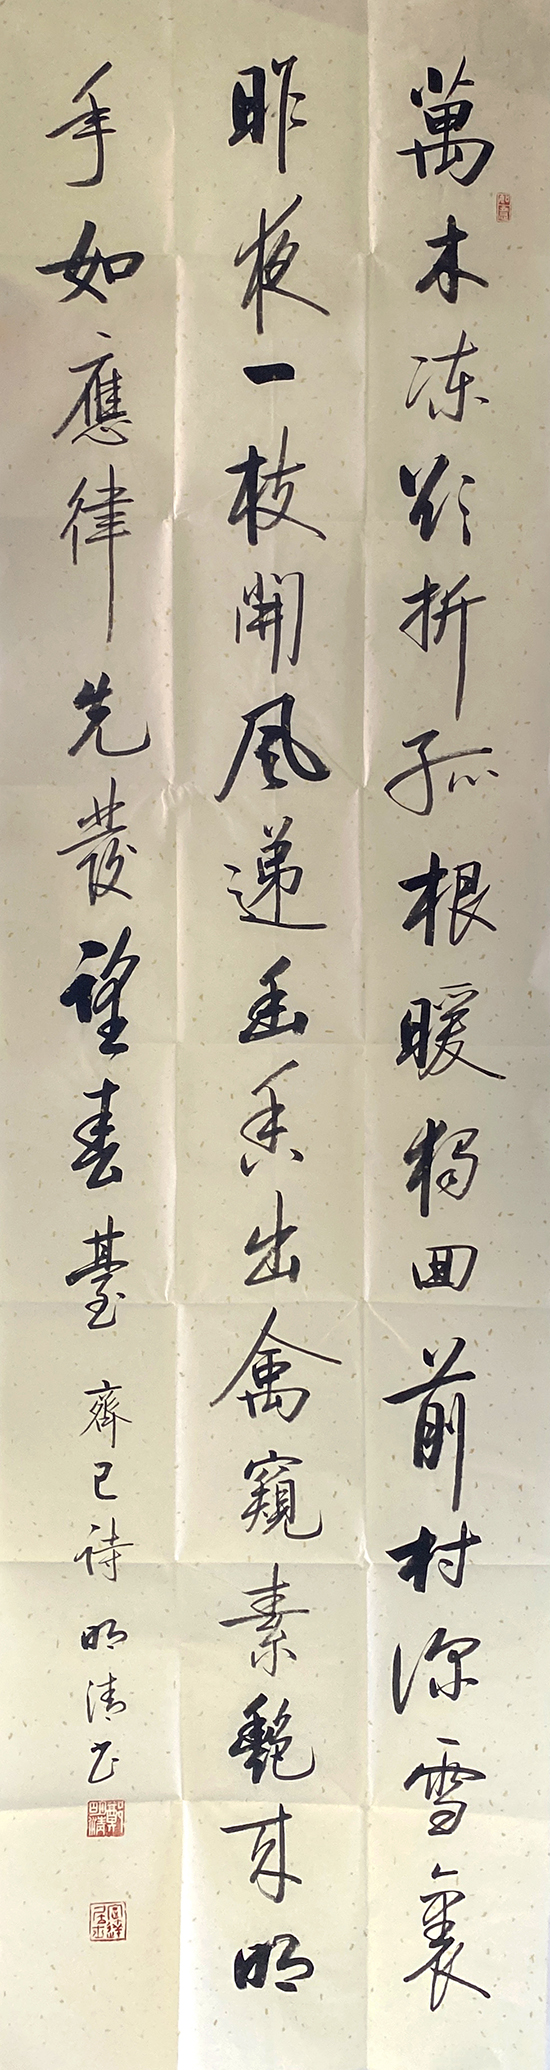 萬木凍欲折孤根暖獨回前村深雪裏
昨夜一枝開風遞幽香出禽窺素艷來明
年如應律先發望春臺 齊己詩 明清书
鄭明清